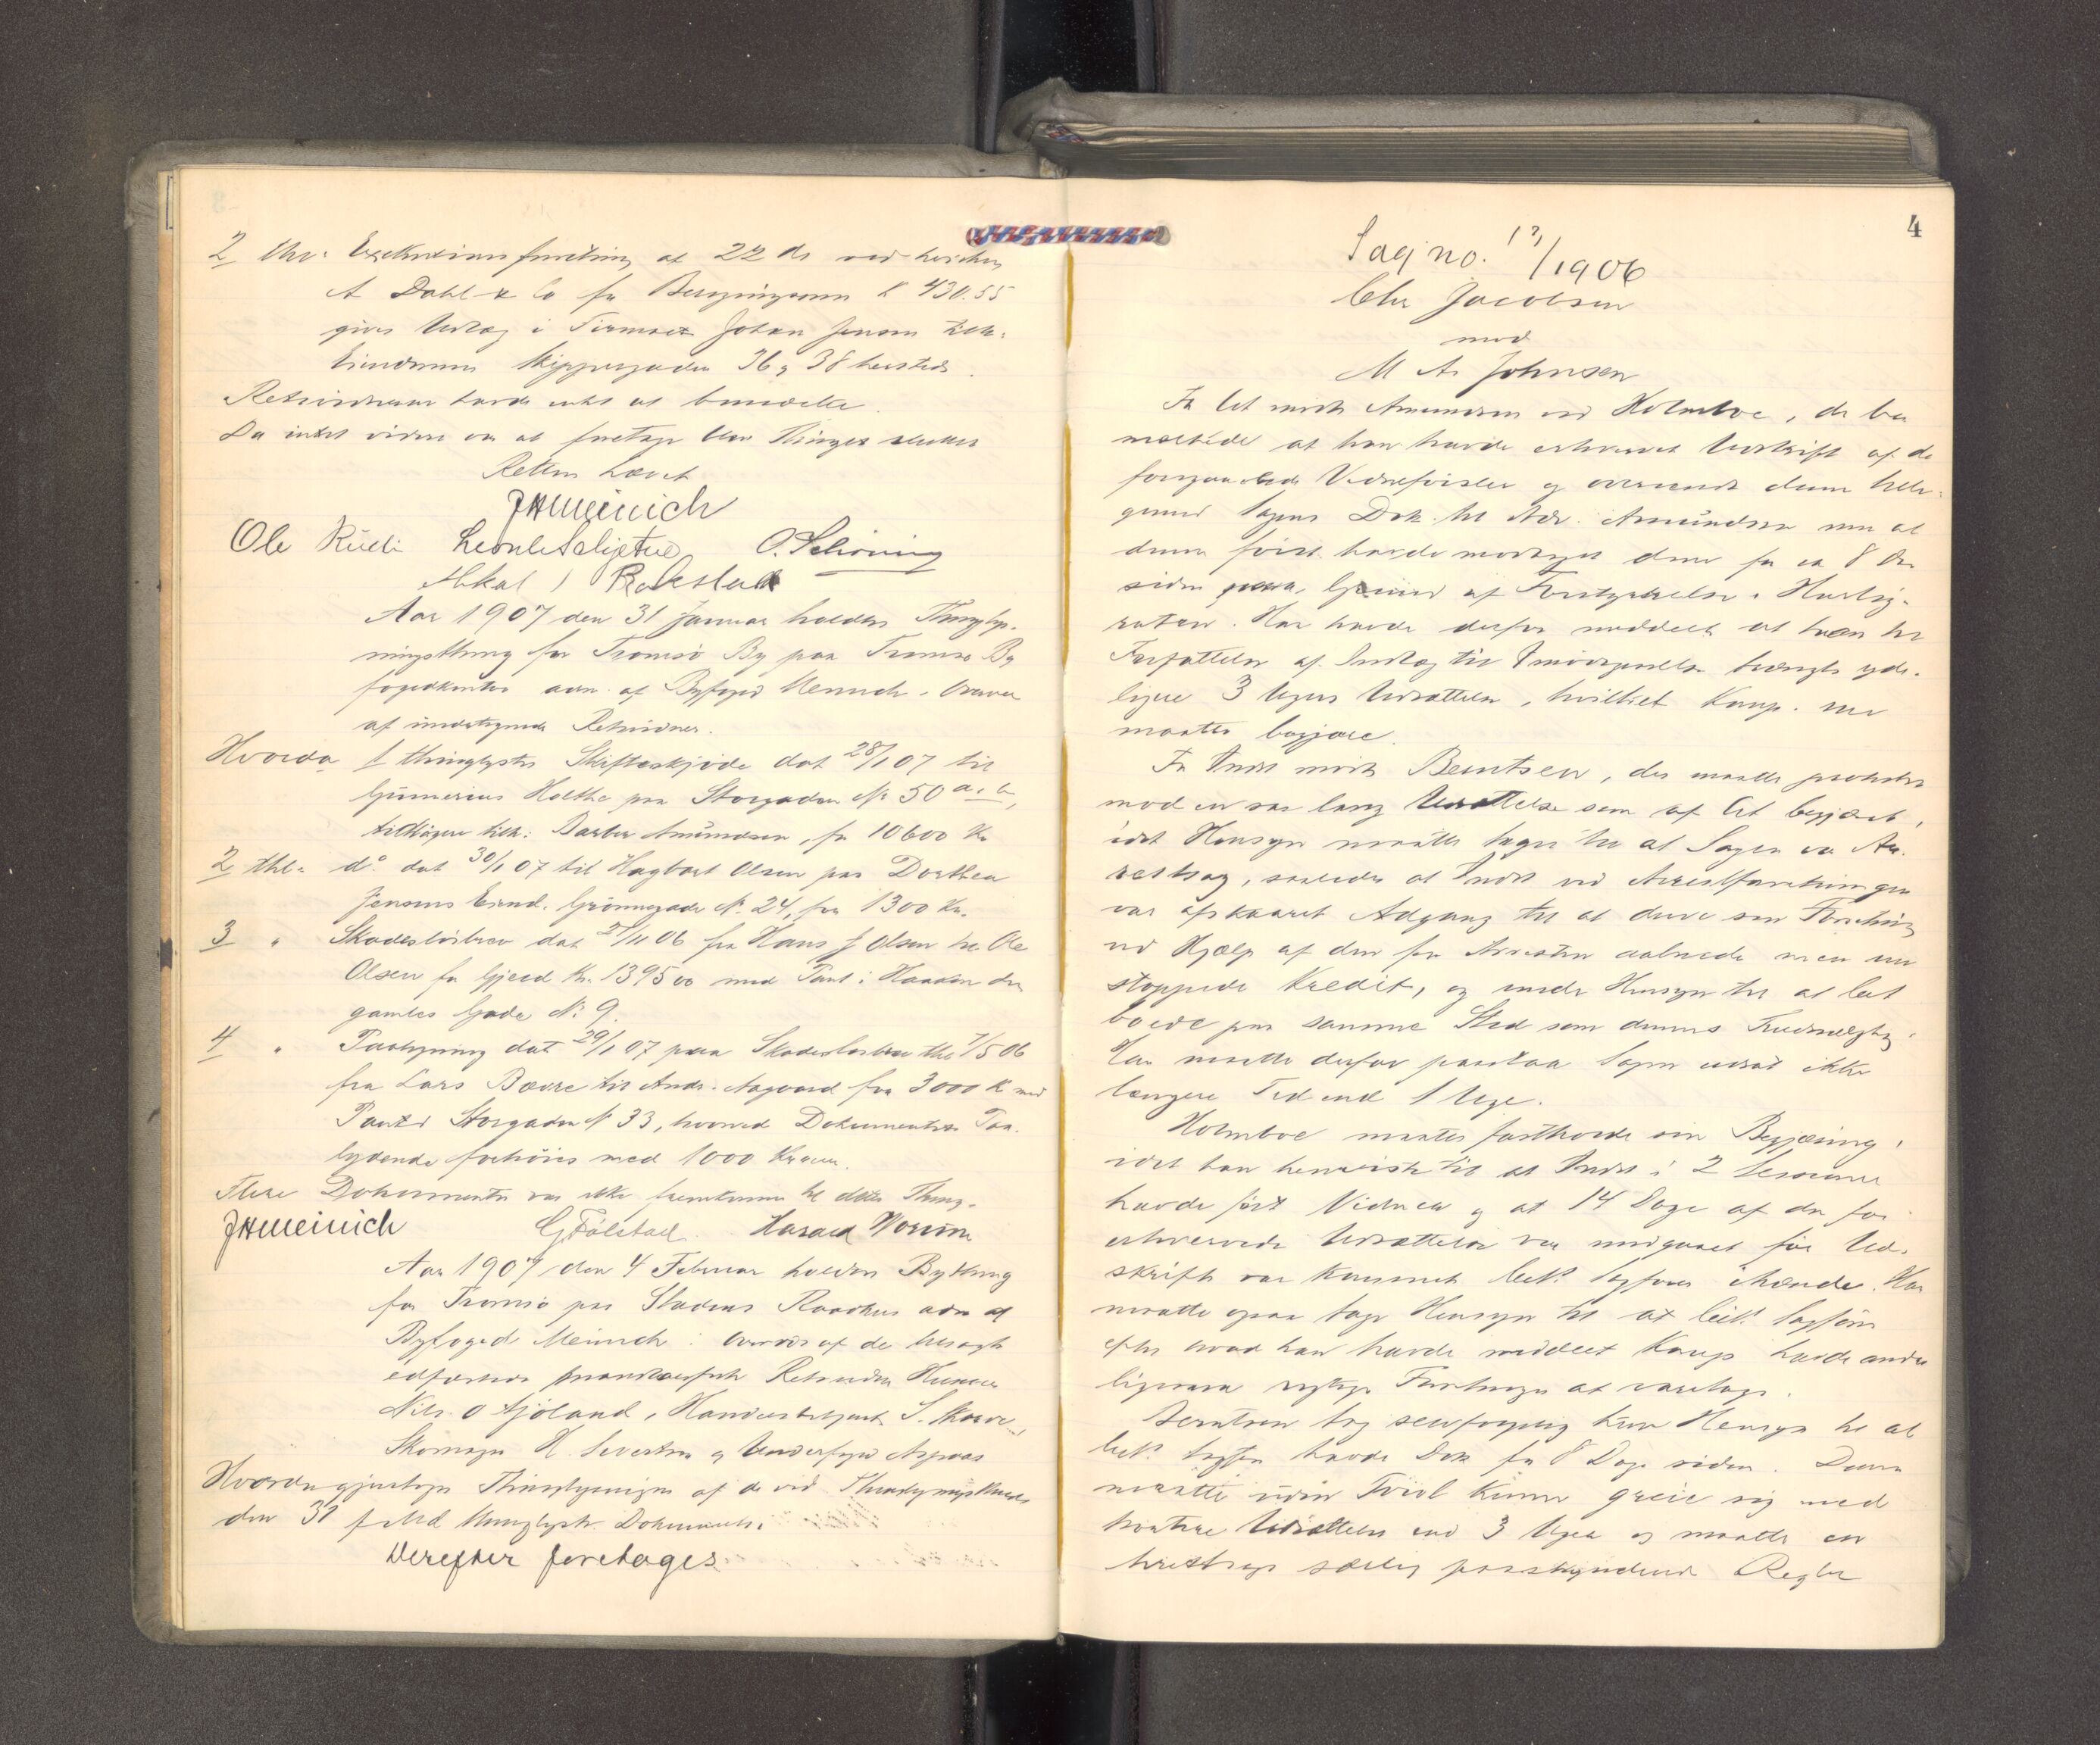 2 thl: Exekutionsforretning af 22 ds ved hvilken
A Dahl & Co for Bergningsum K 430.55
gives Udlæg i Firmaet Johan Jensen tilh:
Eiendomme Skippergaden 36 og 38 hersteds.
Retsvidnerne havde intet at bemærke.
Da intet videre var at foretage blev Thinget sluttet
Retten hævet
JHMeinich
Ole Rüdi O. Schining
Aar 1907 den 31 Januar holdtes Thinglys-
ningsthing for Tromsø By paa Tromsø By
fogedkontor adm. af Byfoged Meinich i Overvær
af undertegnede Retsvidner.
Hvorda 1 thinglystes Skifteskjøde dat 28/1 07 til
Gunnerius Holthe paa Storgaden No 50 a. b,
tidligere tilh: Barber Amundsen, for 10600 Kr
2 thl: do. dat 30/1 07 til Hagbart Olsen paa Dorthea
Jensens Eiend. Grønnegade No. 24, for 1300 Kr.
3 " Skadesløsbrev dat 27/11 06 fra Hans J Olsen til Ole
Olsen for Gjæld Kr. 1395 00 med Pant i Haakon den
gamles Gade No 9.
4 " Paategning dat 29/1 07 paa Skadesløsbrev thl 7/5 06
fra Lars Bævre til Andr. Aagaard for 3000 K med
Pant i Storgaden No 33, hvorved Dokumentets Paa-
lydende forhøies med 1000 Kroner.
Flere Dokumenter var ikke fremkomne til dette Thing.
JHMeinich G Følstad Harald
Aar 1907 den 4 Februar holdtes Bything
for Tromsø paa Stadens Raadhus adm af
Byfoged Meinich i Overvær af de
edfæstede Retsvidner
Nils O Fjøland, Handelsbetjent S. Skarve,
Skomager H. Sivertsen og Underfoged Aspaas
Hvorda gjentoges Thinglysningen af de ved Thinglysningsthinget
den 31 f Md thinglyste Dokumenter.
Derefter foretages
4
Sag no. 17/1906
Chr Jacobsen
mod
M A Johnsen
For Cit mødte Amundsen ved Holmboe, der be
mærkede at han havde erhvervet Udskrift af de
foregaaende Vidneførsler og oversendt denne tillige-
gemed Sagens Dok. til Adv. Amundsen men at
denne først havde modtaget dem for ca 8 Da
siden paa Grund af Forstyrrelser i Hurtig-
ruten. Han havde derfor meddelt at han til
Forfattelse af Indlæg til Imødegaaelse trængte yder-
ligere 3 Ugers Udsættelse, hvilket Komp. nu
maatte begjære.
For Indst mødte Berntsen, der maatte protestere
mod en saa lang Udsættelse som af Cit begjæret,
idet Hensyn maatte tages til at Sagen var Ar-
restsag, saaledes at Indst ved Arrestforretningen
var afskaaret Adgang til at drive sin Forretning
ved Hjælp af den før Arresten aabnede men nu
stoppede Kredit, og under Hensyn til at Cit
boede paa samme Sted som dennes Fuldmægtig.
Han maatte derfor paastaa Sagen udsat ikke
længere Tid end 1 Uge.
Holmboe maatte fastholde sin Begjæring,
idet han henviste til at Indst i 2 Sessioner
havde ført Vidner og at 14 Dage af den før
erhvervede Udsættelse var medgaaet før Ud-
skrift var kommet Cit's Sagfører ihænde. Han
maatte ogsaa tage Hensyn til at Cit's Sagfører
efter hvad han havde meddelt Komp havde andre
ligesaa vigtige Forretninger at varetage.
Berntsen tog selvfølgelig kun Hensyn til at
Cit's Sagfører havde Dok for 8 Dage siden. Denne
maatte uden Tvivl kunne greie sig med
kortere Udsættelse end 3 Uger og maatte en
Arrestsags særlig paaskyndende Regler